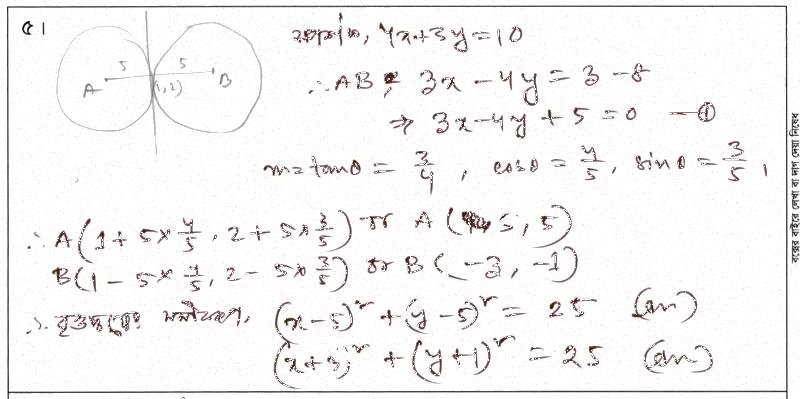 ৫। স্পর্শক, 4x+3y=10
5 5
A (1,2) B
∴ AB, 3x - 4y = 3 - 8
⇒ 3x - 4y + 5 = 0 —①
m = tanθ = 3/4, cosθ = 4/5, sinθ = 3/5,
∴ A(1 + 5× 4/5, 2 + 5× 3/5) বা A (5, 5)
B(1 - 5× 4/5, 2 - 5× 3/5) বা B (-3, -1)
∴ বৃত্তদ্বয়ের সমীকরণ, (x-5)² + (y-5)² = 25 (Ans)
(x+3)² + (y+1)² = 25 (Ans)
বক্সের বাইরে লেখা বা দাগ দেয়া নিষেধ